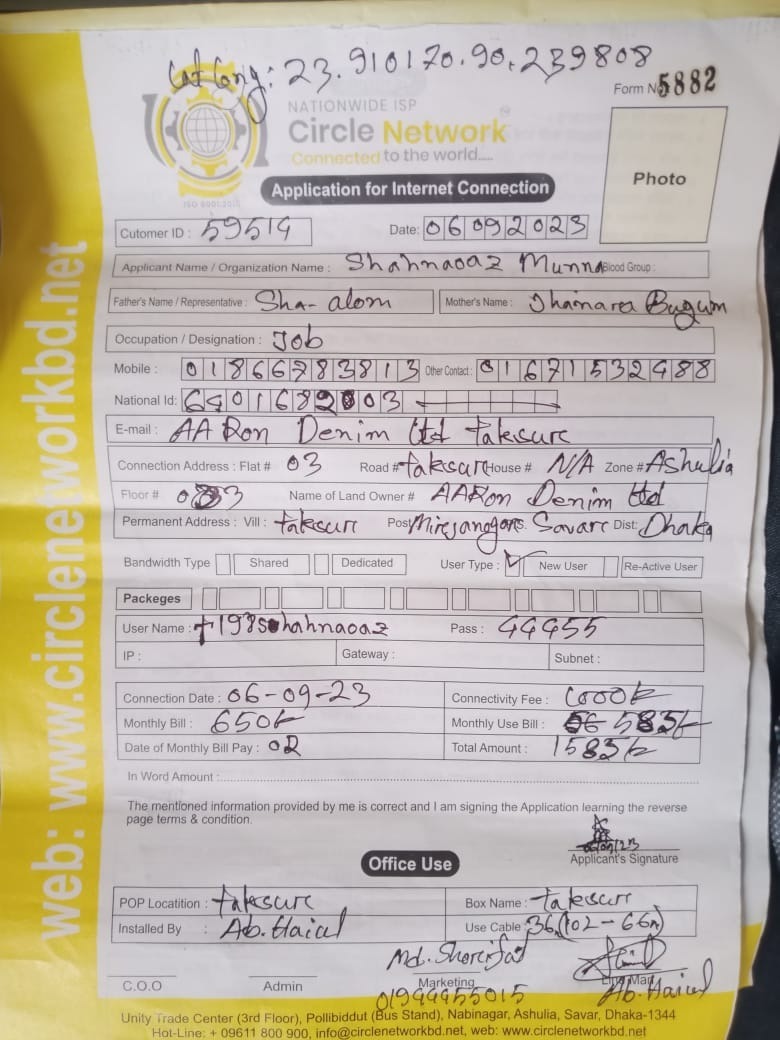 Lat Long: 23.910170.90.239808
Form No 5882
NATIONWIDE ISP
Circle Network
Connected to the world....
ISO 9001:2015
Application for Internet Connection
Photo
Cutomer ID : 59514 Date: 06092023
Applicant Name / Organization Name : Shahnaoaz Munna Blood Group :
Father's Name / Representative : Sha- alom Mother's Name : Jhamara Bugum
Occupation / Designation : Job
Mobile : 01866783813 Other Contact : 01671532488
National Id:
E-mail : AA Ron Denim Ltd taksure
Connection Address : Flat # 03 Road # taksure House # N/A Zone # Ashulia
Floor # 03 Name of Land Owner # AARon Denim Ltd
Permanent Address : Vill : taksurc Post Savarc Dist: Dhaka
Bandwidth Type Shared Dedicated User Type : ✓ New User Re-Active User
Packeges
User Name : shahnaoaz Pass : 44455
IP : Gateway : Subnet :
Connection Date : 06-09-23 Connectivity Fee : 1000k
Monthly Bill : 650k Monthly Use Bill : 583k
Date of Monthly Bill Pay : 02 Total Amount : 1583k
In Word Amount :
The mentioned information provided by me is correct and I am signing the Application learning the reverse
page terms & condition.
Applicant's Signature
Office Use
POP Locatition : taksurc Box Name : taksurc
Installed By : Ab. Haiul Use Cable : 36 (102-66m)
Md. Shorifat
C.O.O Admin Marketing Line Man
01999955015 Ab. Haiul
Unity Trade Center (3rd Floor), Pollibiddut (Bus Stand), Nabinagar, Ashulia, Savar, Dhaka-1344
Hot-Line: + 09611 800 900, info@circlenetworkbd.net, web: www.circlenetworkbd.net
web: www.circlenetworkbd.net